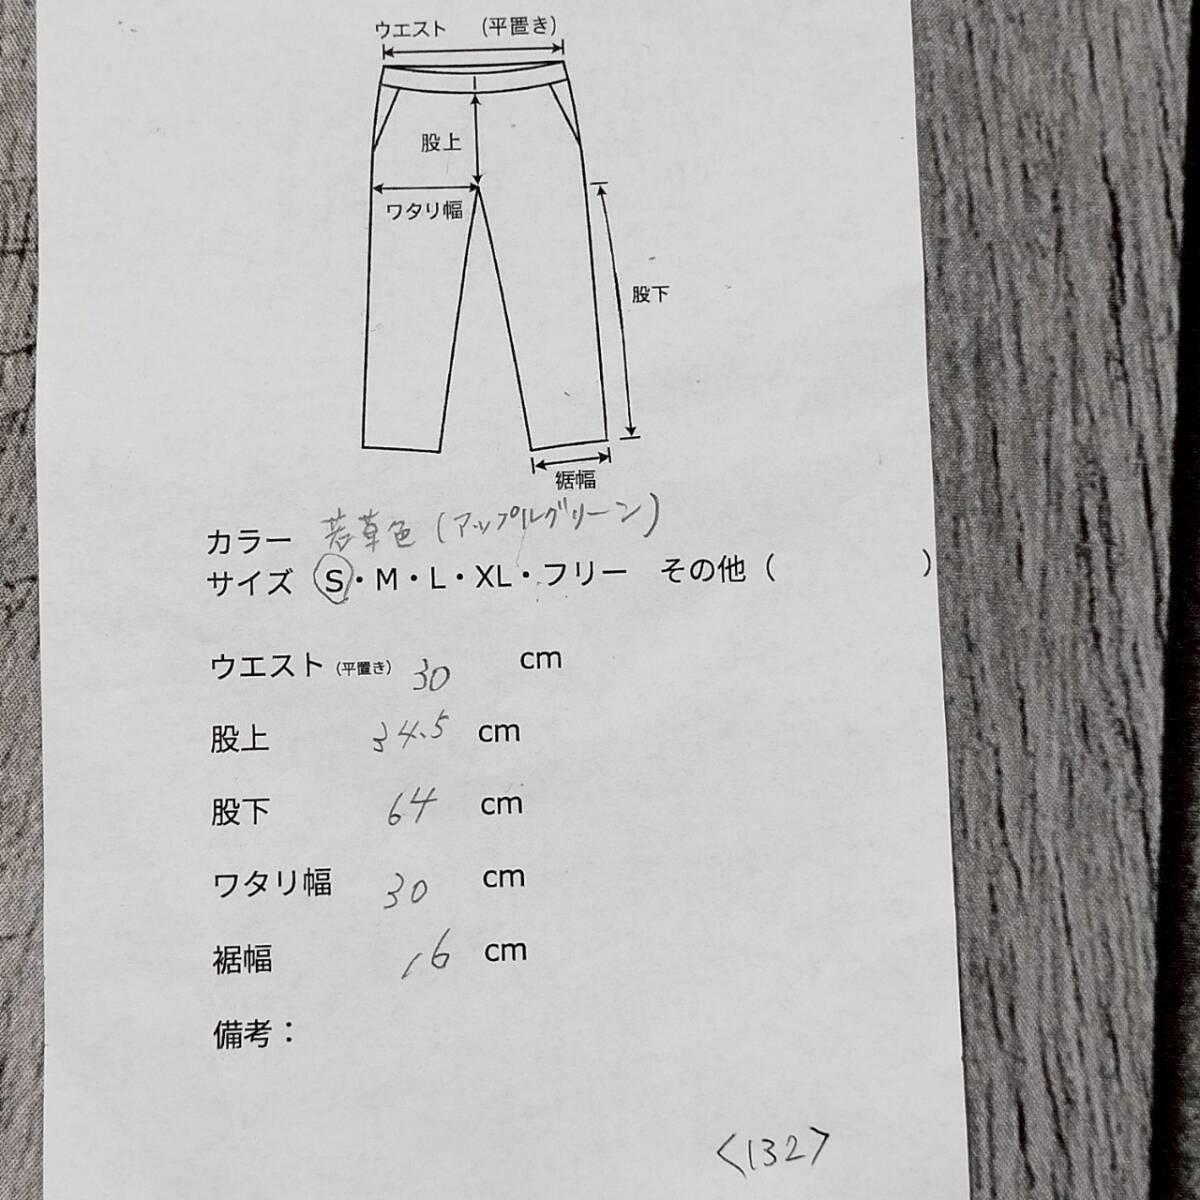 ウエスト (平置き)
股上
ワタリ幅
股下
裾幅
カラー 若草色(アップルグリーン)
サイズ S・M・L・XL・フリー その他( )
ウエスト(平置き) 30 cm
股上 34.5 cm
股下 64 cm
ワタリ幅 30 cm
裾幅 16 cm
備考：
<132>